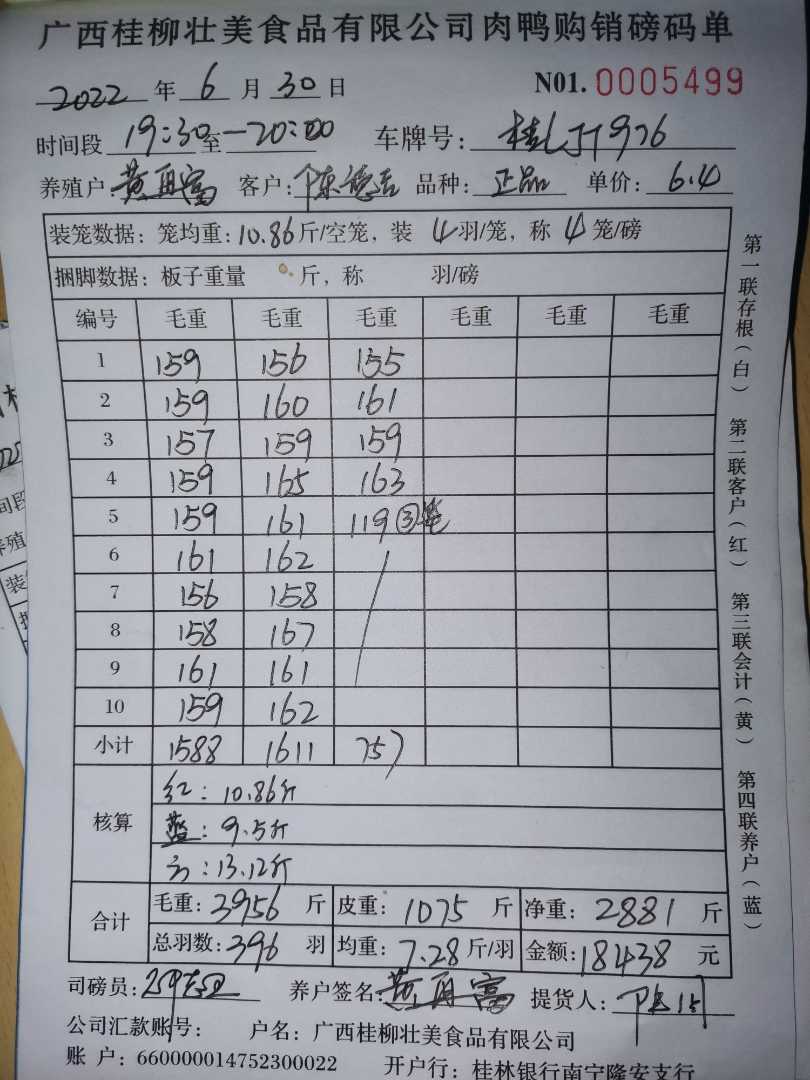 广西桂柳壮美食品有限公司肉鸭购销磅码单
2022 年 6 月 30 日 N01. 0005499
时间段 19:30 至 —20:00 车牌号: 桂
养殖户: 黄再富 客户: 陈德 品种: 正品 单价: 6.4
装笼数据: 笼均重: 10.86 斤/空笼, 装 4 羽/笼, 称 4 笼/磅
捆脚数据: 板子重量 斤, 称 羽/磅
编号 毛重 毛重 毛重 毛重 毛重 毛重
1 159 156 155
2 159 160 161
3 157 159 159
4 159 165 163
5 159 161 119 ③笼
6 161 162
7 156 158
8 158 167
9 161 161
10 159 162
小计 1588 1611 757
核算
红: 10.86斤
蓝: 9.5斤
方: 13.12斤
合计
毛重: 3956 斤 皮重: 1075 斤 净重: 2881 斤
总羽数: 396 羽 均重: 7.28 斤/羽 金额: 18438 元
司磅员: 养户签名: 黄再富 提货人:
公司汇款账号: 户名: 广西桂柳壮美食品有限公司
账 户: 660000014752300022 开户行: 桂林银行南宁隆安支行
第一联存根(白) 第二联客户(红) 第三联会计(黄) 第四联养户(蓝)